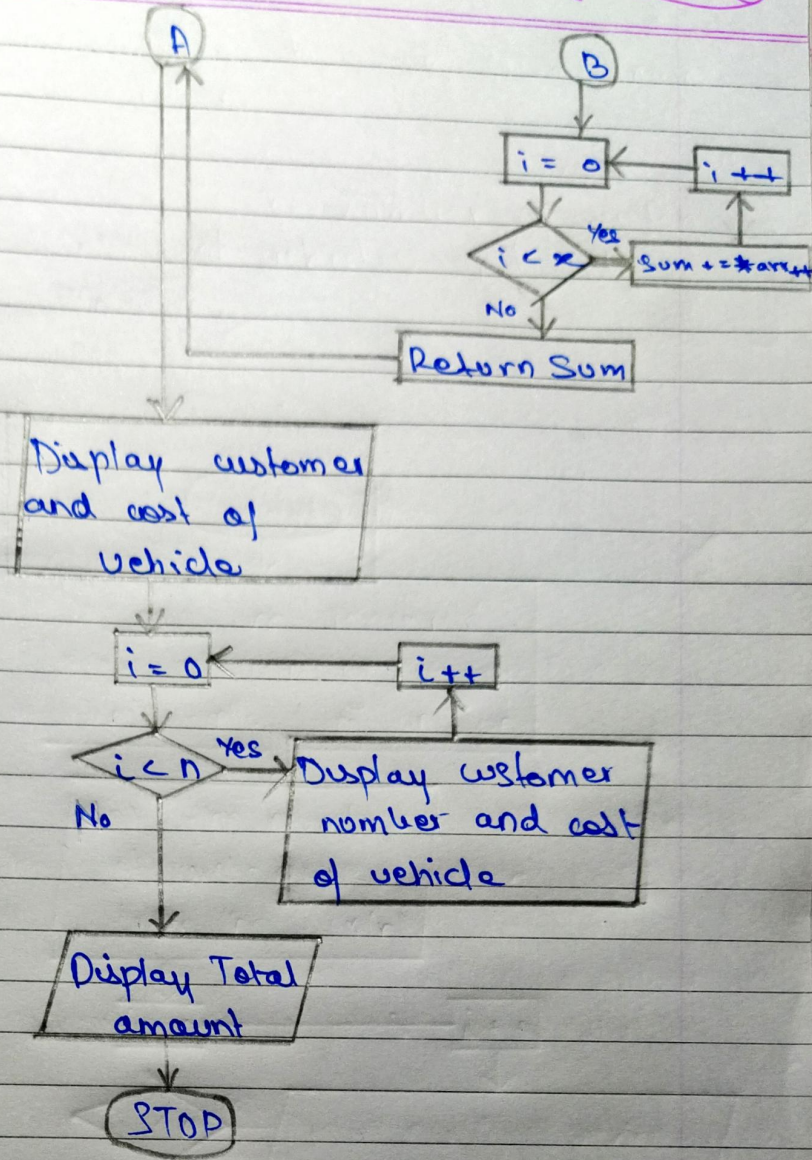 A
B
i = 0
i ++
i < x
Yes
Sum + = *arr++
No
Return Sum
Display customer
and cost of
vehicle
i = 0
i ++
i < n
Yes
No
Display customer
number and cost
of vehicle
Display Total
amount
STOP